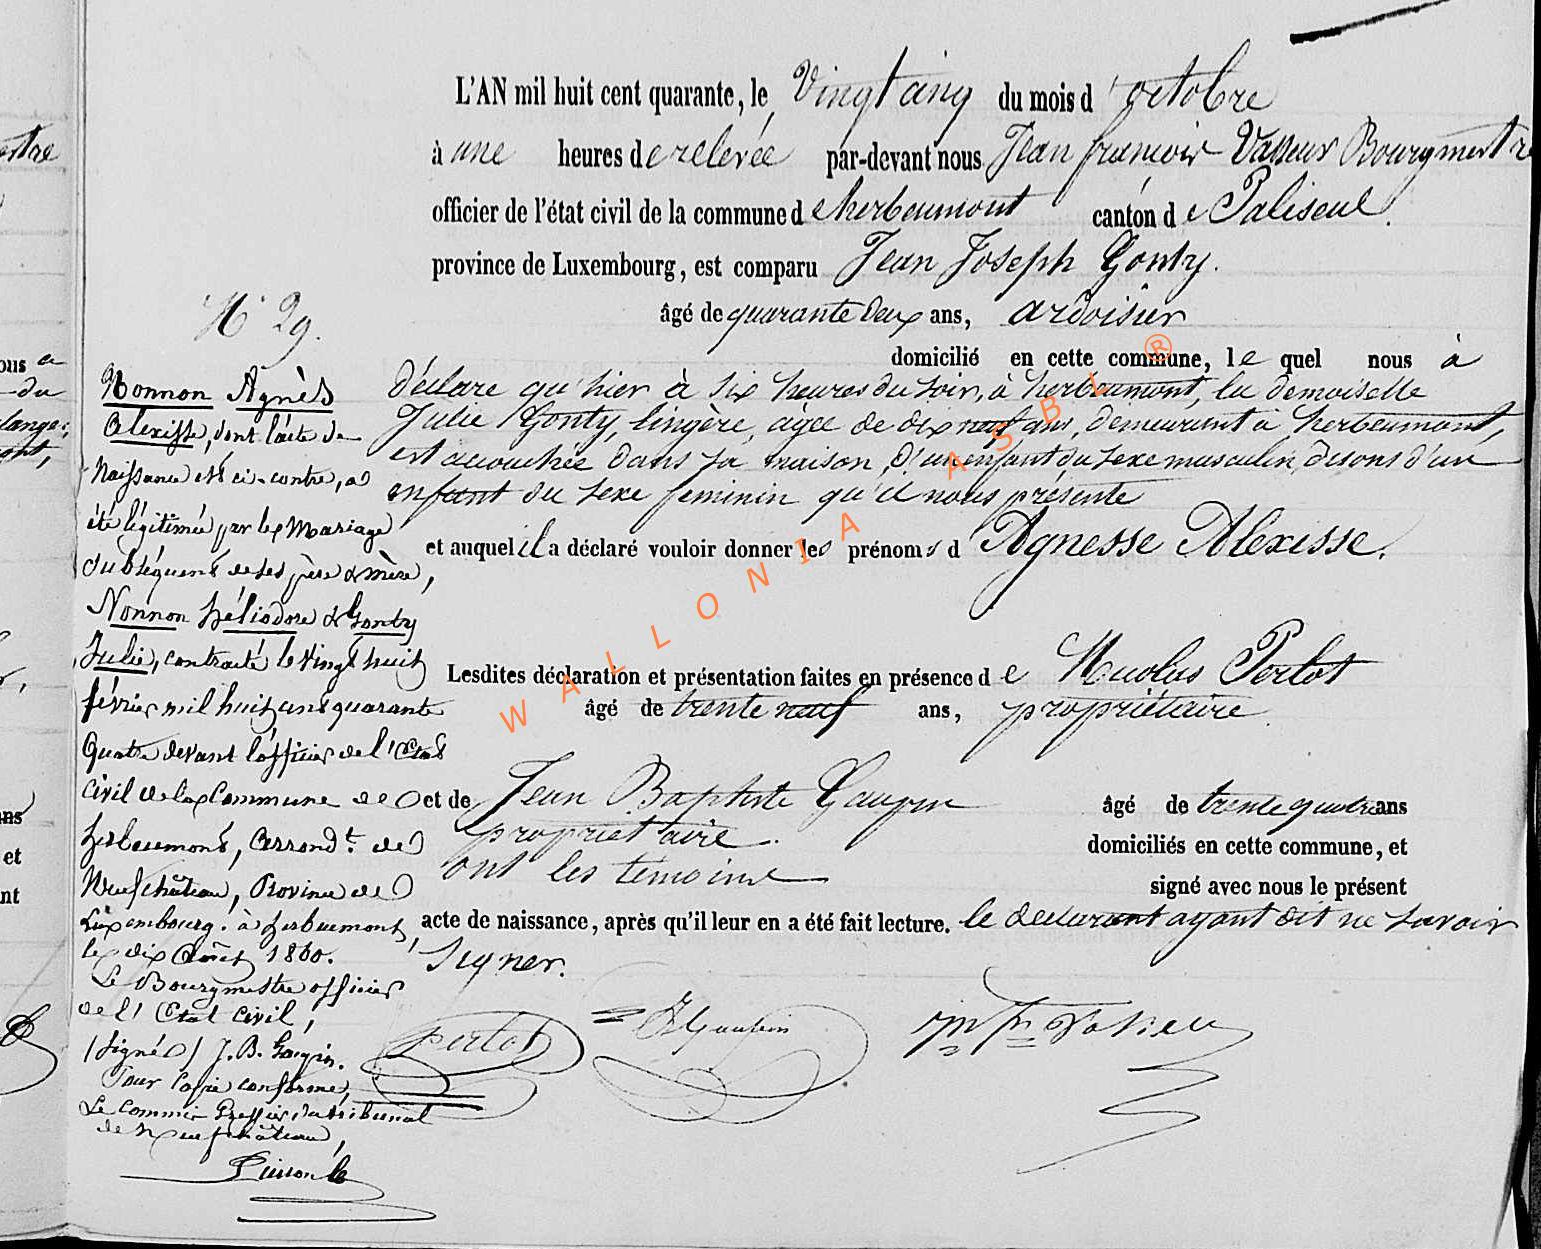 L'AN mil huit cent quarante, le Vingt cinq du mois d'octobre
à une heures de relevée par-devant nous Jean françois Vasseur Bourgmestre
officier de l'état civil de la commune de herbeumont canton de Paliseul.
province de Luxembourg, est comparu Jean Joseph Gonty.
âgé de quarante deux ans, ardoisier
domicilié en cette commune, lequel nous à
déclare qu'hier à six heures du soir, à herbeumont, la demoiselle
Julie Gonty, lingère, agée de dix neuf ans, demeurant à herbeumont,
est accouchée dans sa maison, d'un enfant du sexe masculin, disons d'un
enfant du sexe feminin qu'il nous présente
et auquel il a déclaré vouloir donner les prénoms d Agnesse Alexisse.
Lesdites déclaration et présentation faites en présence de Nicolas Perlot
âgé de trente neuf ans, propriétaire
et de Jean Baptiste Gaupin âgé de trente quatre ans
propriétaire. domiciliés en cette commune, et
ont les temoins signé avec nous le présent
acte de naissance, après qu'il leur en a été fait lecture. le declarant ayant dit ne savoir
signer.
perlot JB Gaupin
N° 29.
Nonnon Agnès
Alexisse, dont l'acte de
Naissance est ci-contre, a
été légitimée par le Mariage
subséquent de ses père & mère,
Nonnon Héliodore & Gonty
Julie, contracté le vingt huit
février mil huit cent quarante
quatre devant l'officier de l'Etat
Civil de la Commune de
Herbeumont, Arrondt. de
Neufchâteau, Province de
Luxembourg. à Herbeumont,
le dix Août 1860.
Le Bourgmestre officier
de l'Etat civil,
(signé) J. B. Gaupin.
Pour copie conforme,
Le Commis Greffier du tribunal
de Neufchâteau,
WALLONIA ASBL ®